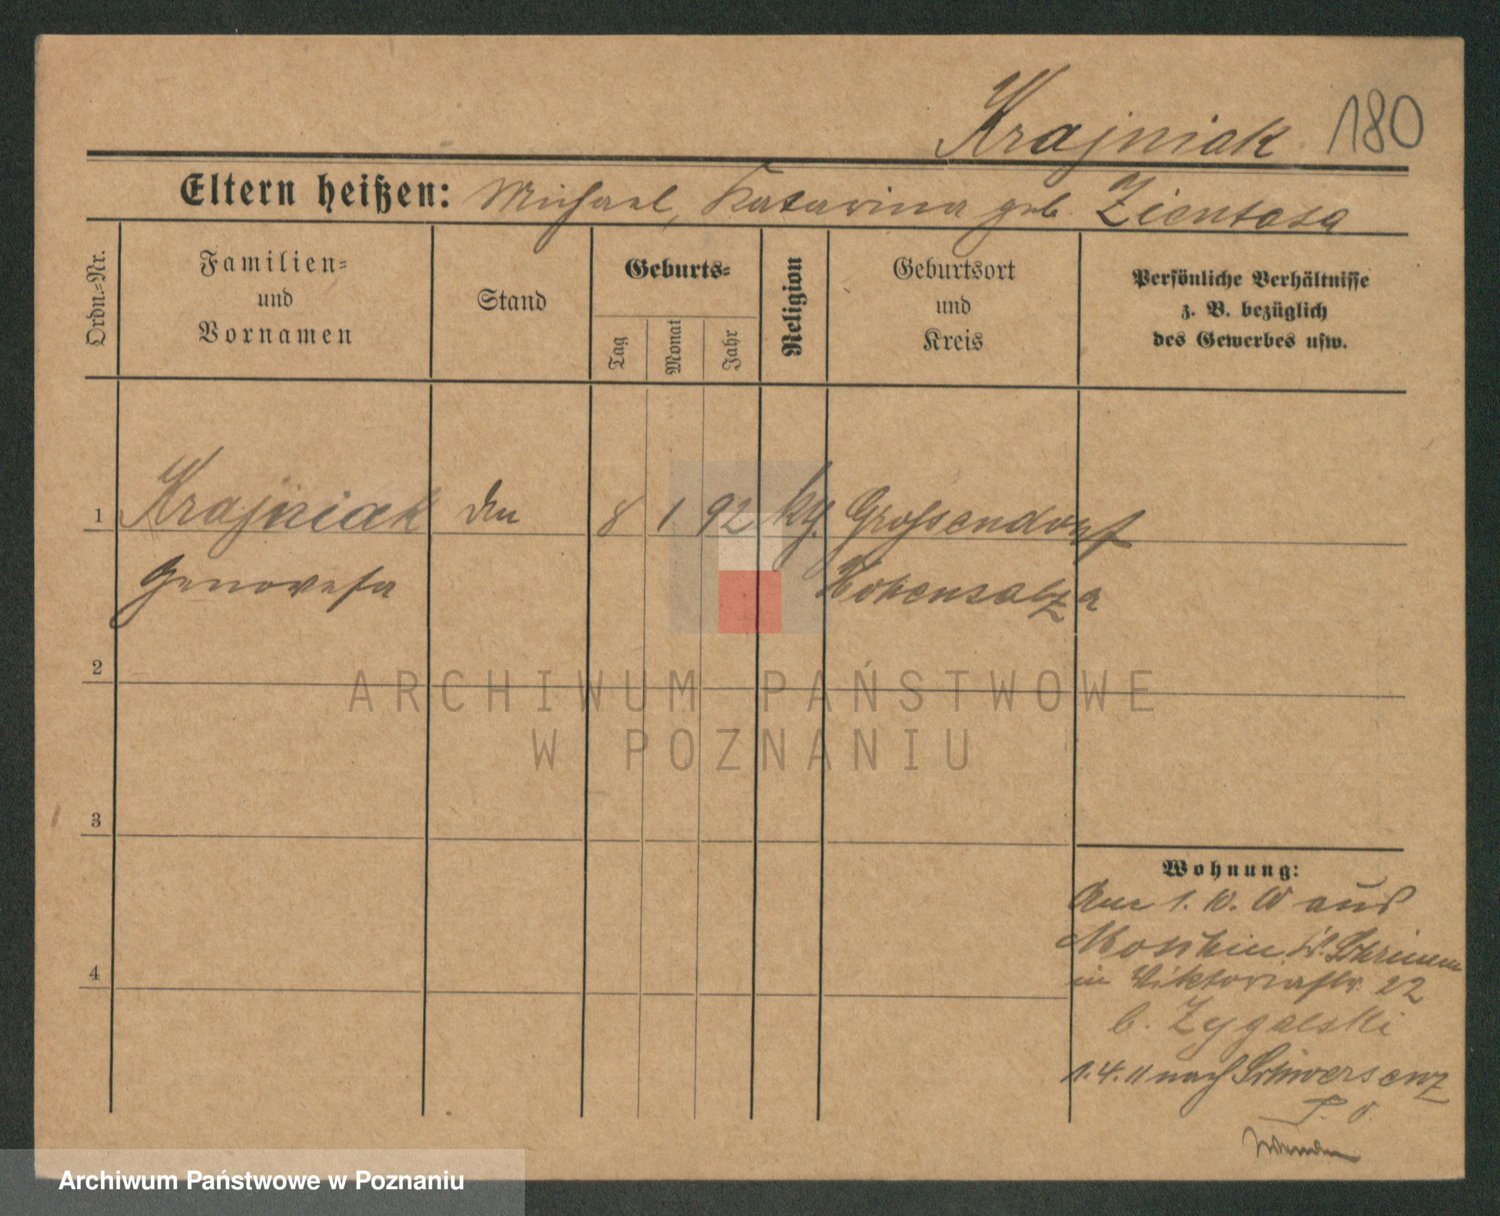 Krajniak 180
Eltern heißen: Michael, Katarina geb. Zientara
Ordn.-Nr.
Familien-
und
Vornamen
Stand
Geburts-
Tag
Monat
Jahr
Religion
Geburtsort
und
Kreis
Persönliche Verhältnisse
z. B. bezüglich
des Gewerbes usw.
1 Krajniak 8 1 92 Grossendorf
Genovefa Hohensalza
2
3
4
Wohnung:
Am 1. 10. 10 aus
Moschin, Kr. Schrimm
in Viktoriastr. 22
b. Zygalski
1.4.11 nach Schwersenz
ARCHIWUM PAŃSTWOWE
W POZNANIU
Archiwum Państwowe w Poznaniu